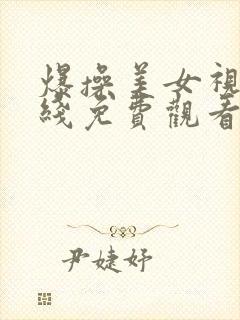 爆操美女視
綫免費觀看
尹婕妤